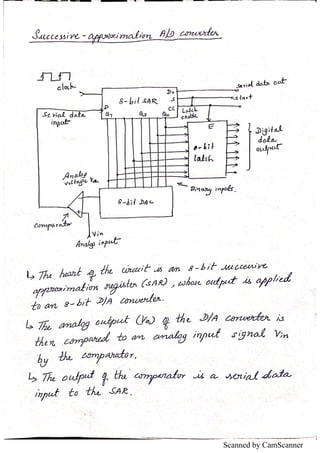 Successive-approximation A/D converter
clock
Do
serial data out
8-bit SAR
S
start
D
CC
Latch
enable
Q7
Q0
Serial data
input
E
Digital
data
output
8-bit
latch
Analog
voltage Va
Binary inputs.
8-bit DAC
comparator
Vin
Analog input
↳ The heart of the circuit is an 8-bit successive
approximation register (SAR), whose output is applied
to an 8-bit D/A converter.
↳ The analog output (Va) of the D/A converter is
then compared to an analog input signal Vin
by the comparator.
↳ The output of the comparator is a serial data
input to the SAR.
Scanned by CamScanner